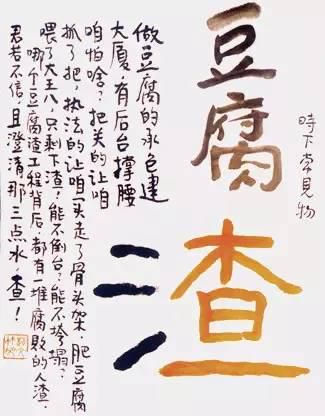 豆腐
查
時下常見物
做豆腐的承包建
大厦，有后台撑腰
咱怕啥？把关的让咱
抓了把，执法的让咱买走了骨头架，肥豆腐
喂了大王八，只剩下渣！能不倒台？能不垮塌？
哪个豆腐渣工程背后，都有一堆腐敗的人渣，
君若不信，且澄清那三点水，查！